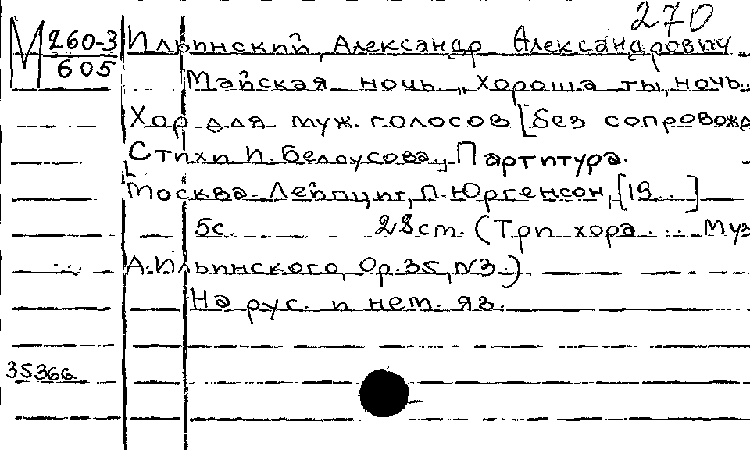 270
М 260-3
605
Ильинский, Александр Александрович
Майская ночь. „Хороша ты, ночь..
Хор для муж. голосов [без сопровожд
Стихи И. Белоусова. Партитура.
Москва-Лейпциг, П. Юргенсон, [19..]
5с. 28 ст. (Три хора ... Муз
А. Ильинского, Ор. 35, №3.)
На рус. и нем. яз.